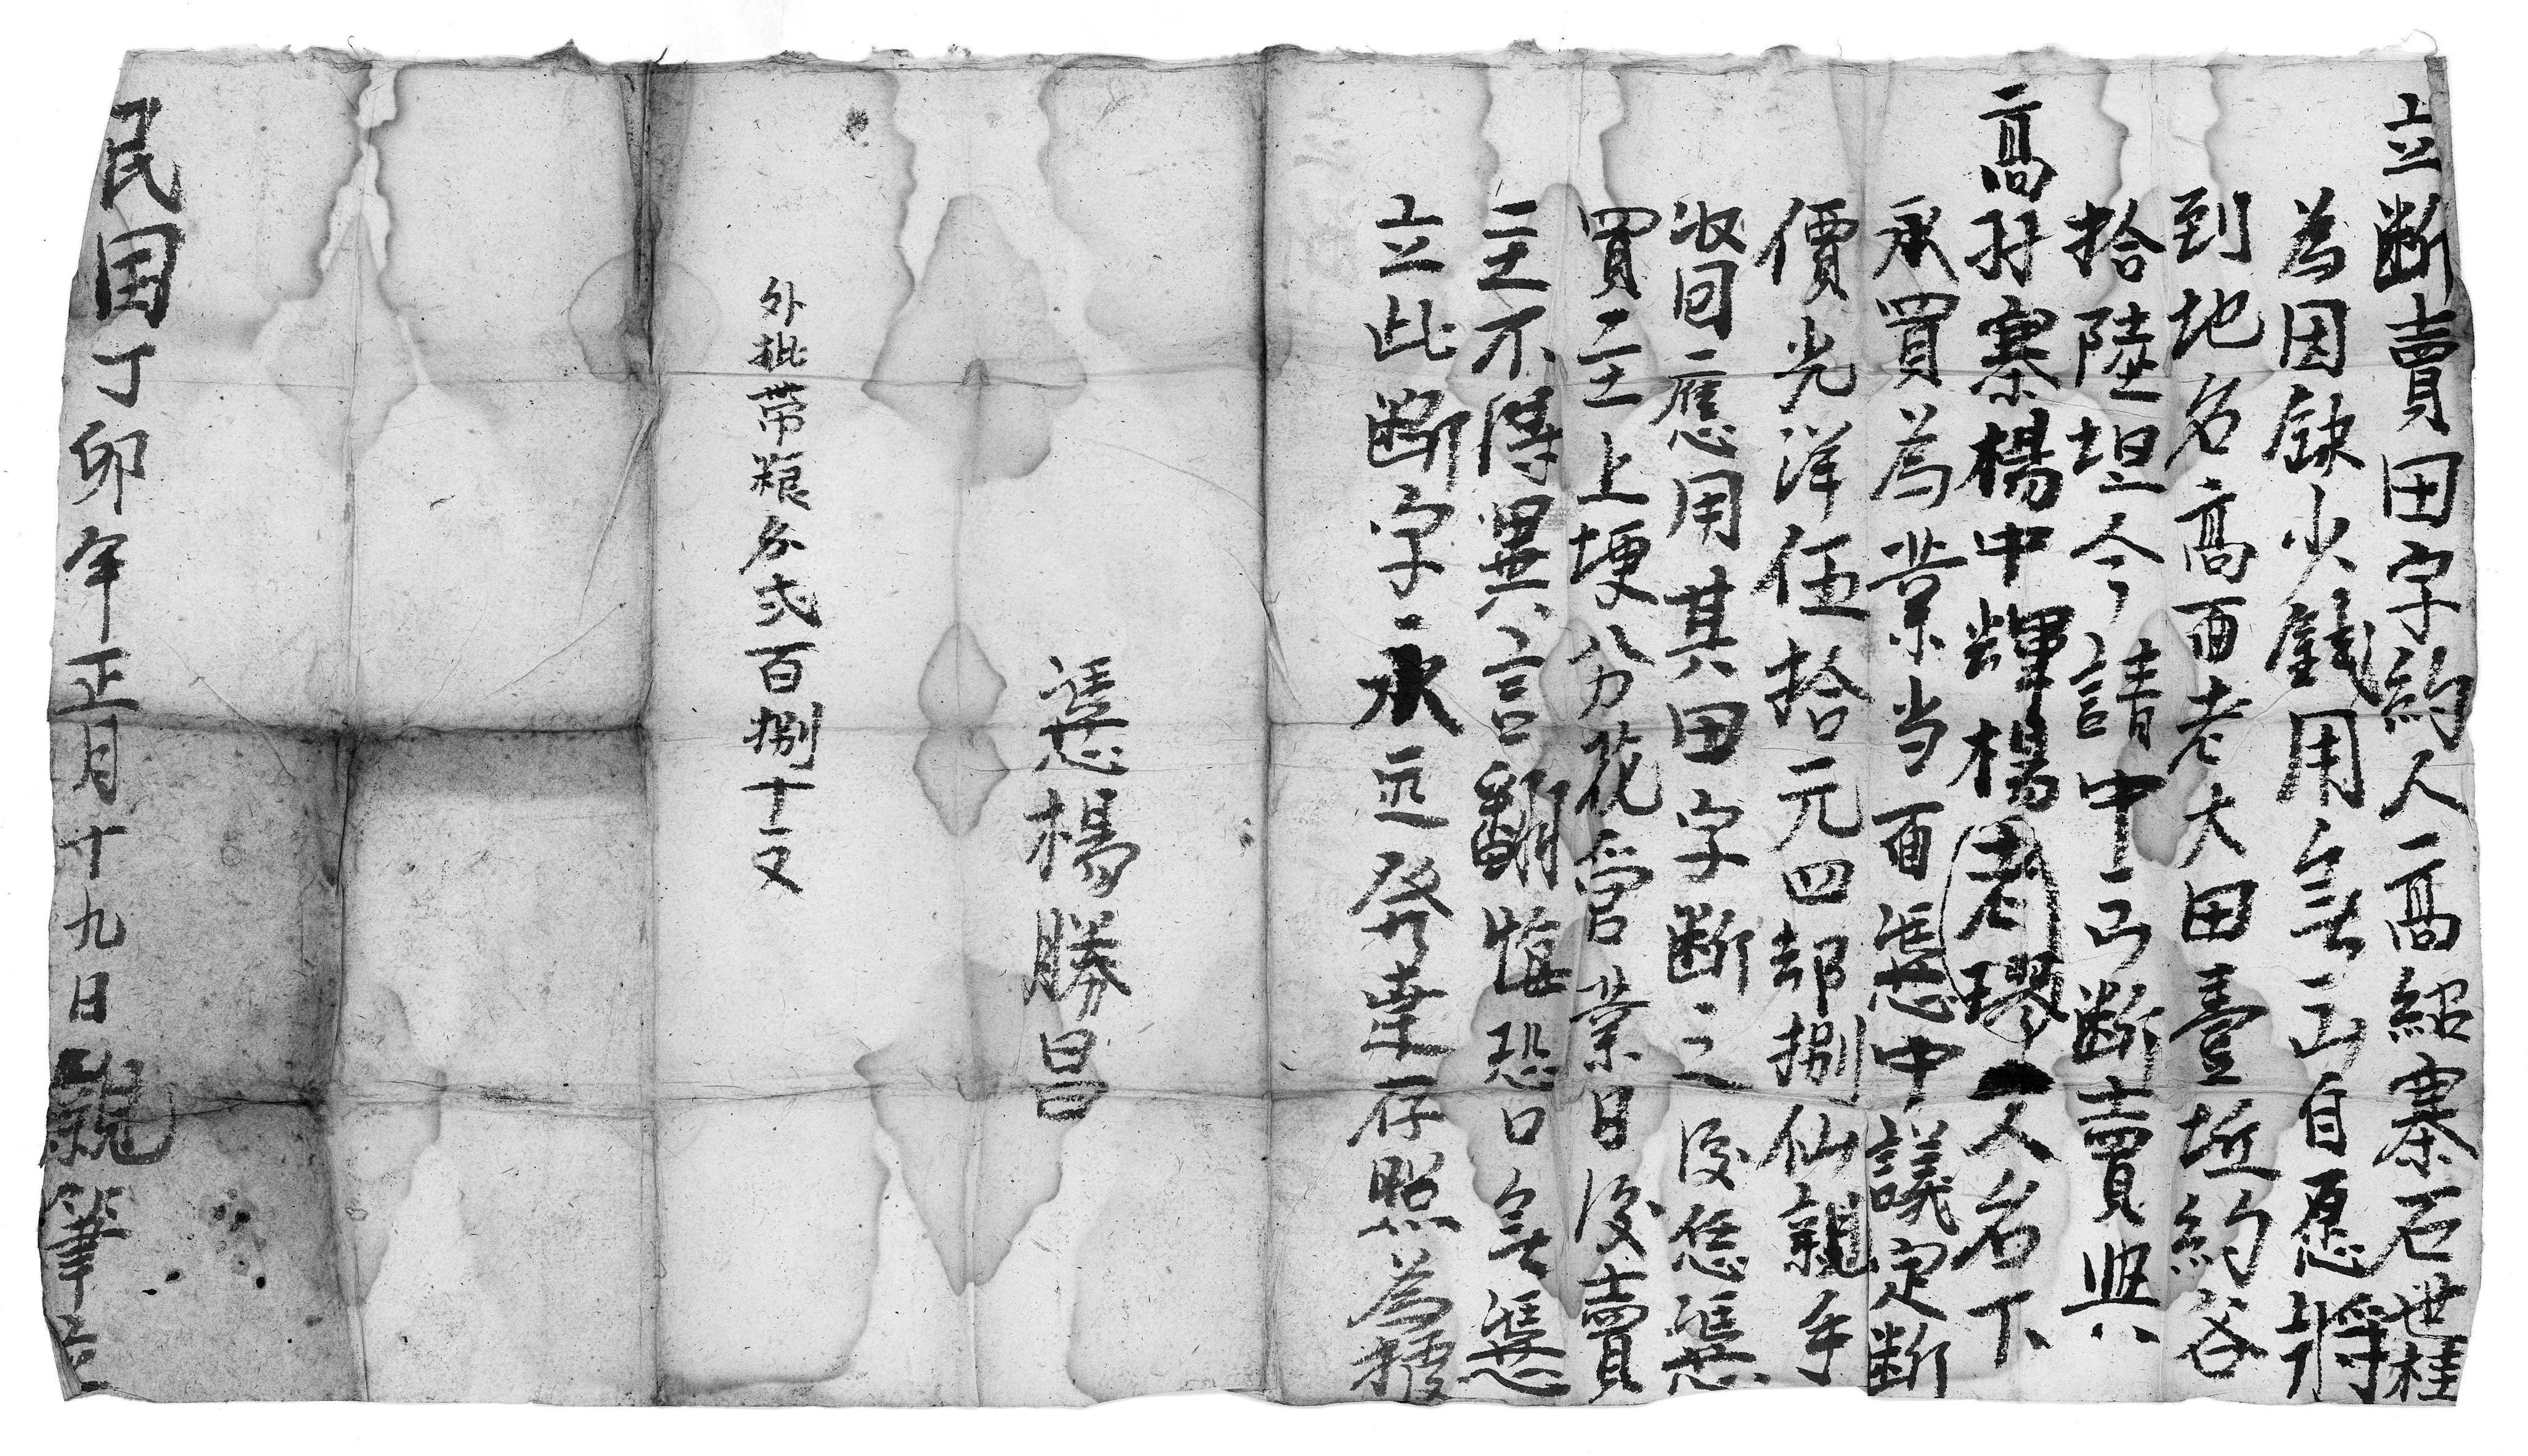 立斷賣田字約人高紹寨石世桂
為因缺少錢用無 自愿將
到地名高面老大田壹坵約谷
拾陸担今請中 斷賣與
高 寨楊中輝楊老璆二人名下
承買為業当面憑中議定斷
價光洋伍拾元四却捌仙親手
收回應用其田字斷之後恁憑
買主上埂 花管業日後賣
主不得異言翻悔恐口無憑
立此斷字永远發達存照為
憑楊勝昌
外批带粮 弍百捌十
民国丁卯年正月十九日親筆立